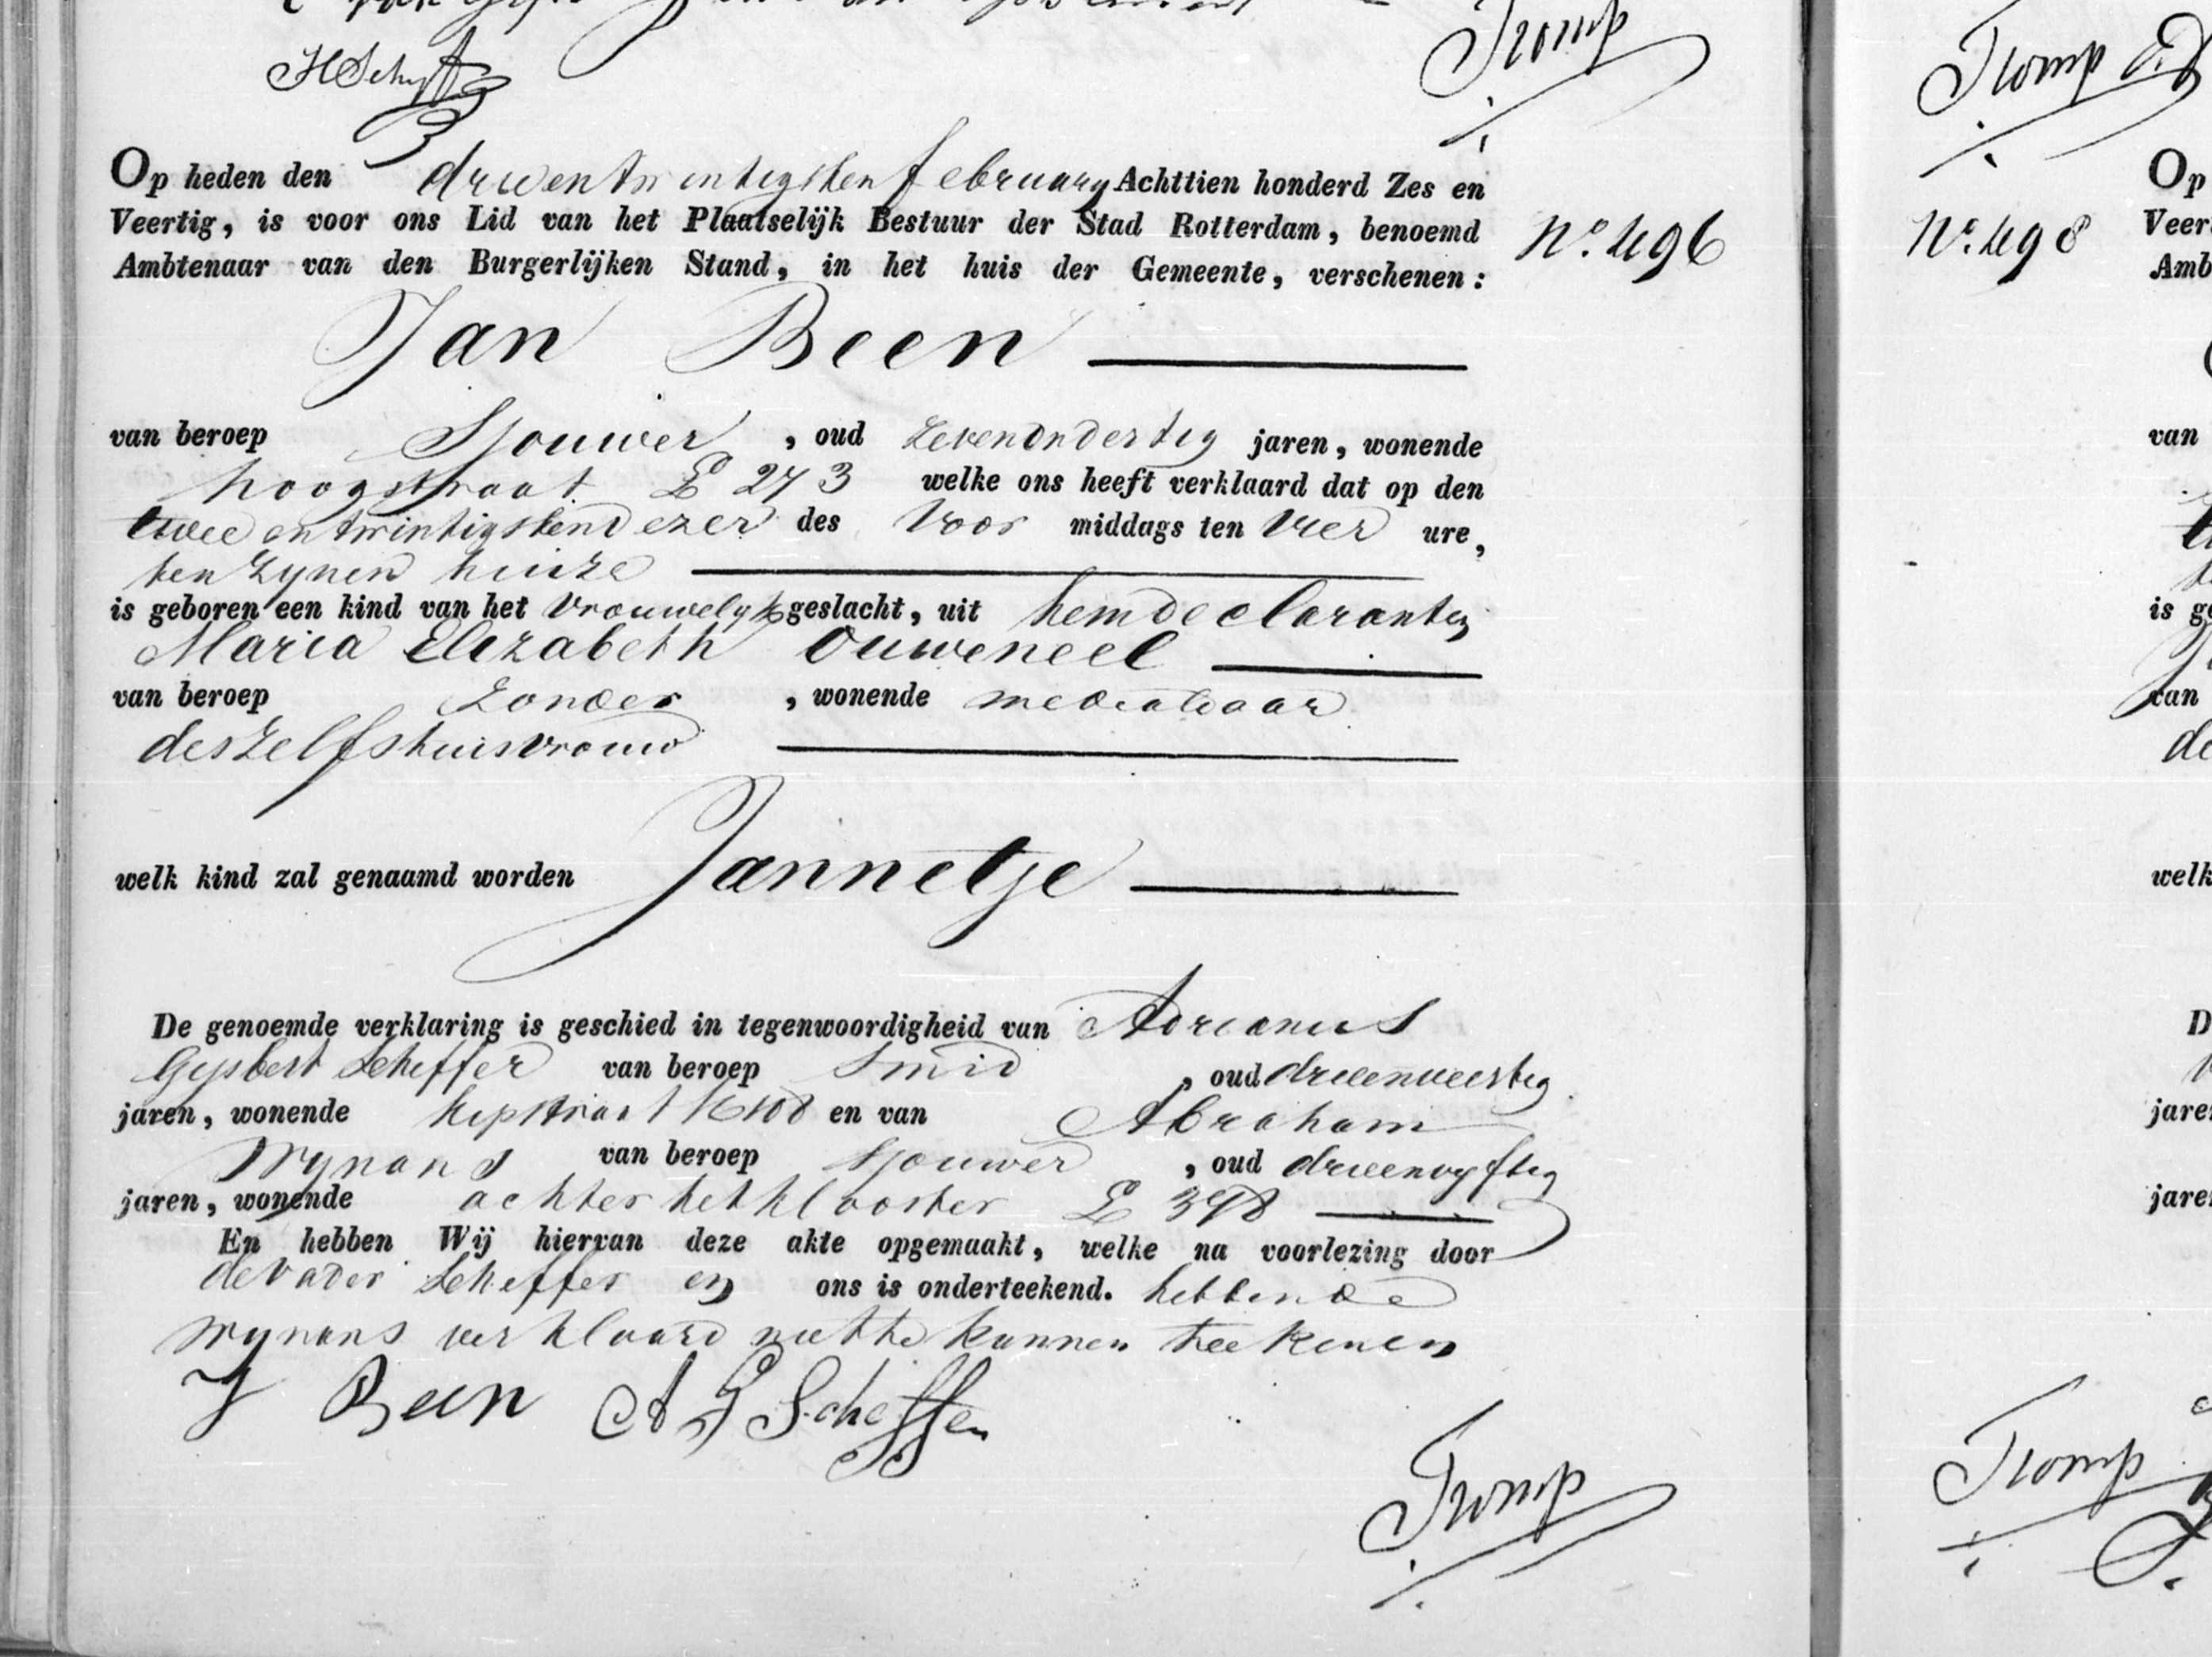 HSchyff
Tromp
Op heden den drieentwintigsten february Achttien honderd Zes en
Veertig, is voor ons Lid van het Plaatselijk Bestuur der Stad Rotterdam, benoemd
Ambtenaar van den Burgerlijken Stand, in het huis der Gemeente, verschenen:
No. 496
Jan Been
van beroep Sjouwer, oud zevenendertig jaren, wonende
hoogstraat E 273 welke ons heeft verklaard dat op den
tweeentwintigsten dezer des Voor middags ten vier ure,
ten zynen huize
is geboren een kind van het vrouwelyk geslacht, uit hem declarant en
Maria Elizabeth Ouweneel
van beroep zonder, wonende mede aldaar
deszelfs huisvrouw
welk kind zal genaamd worden Jannetje
De genoemde verklaring is geschied in tegenwoordigheid van Adrianus
Gysbert Scheffer van beroep Smid, oud drieenveertig
jaren, wonende en van Abraham
Wynans van beroep Sjouwer, oud drieenvyftig
jaren, wonende achter het klooster E 398
En hebben Wij hiervan deze akte opgemaakt, welke na voorlezing door
de vader Scheffer en ons is onderteekend. hebbende
Wynans verklaard niet te kunnen teekenen
J Been A G Scheffer
Tromp
Tromp
No. 498
Op
Veer
Amb
van
is ge
van
de
welk
D
jare
jare
Tromp